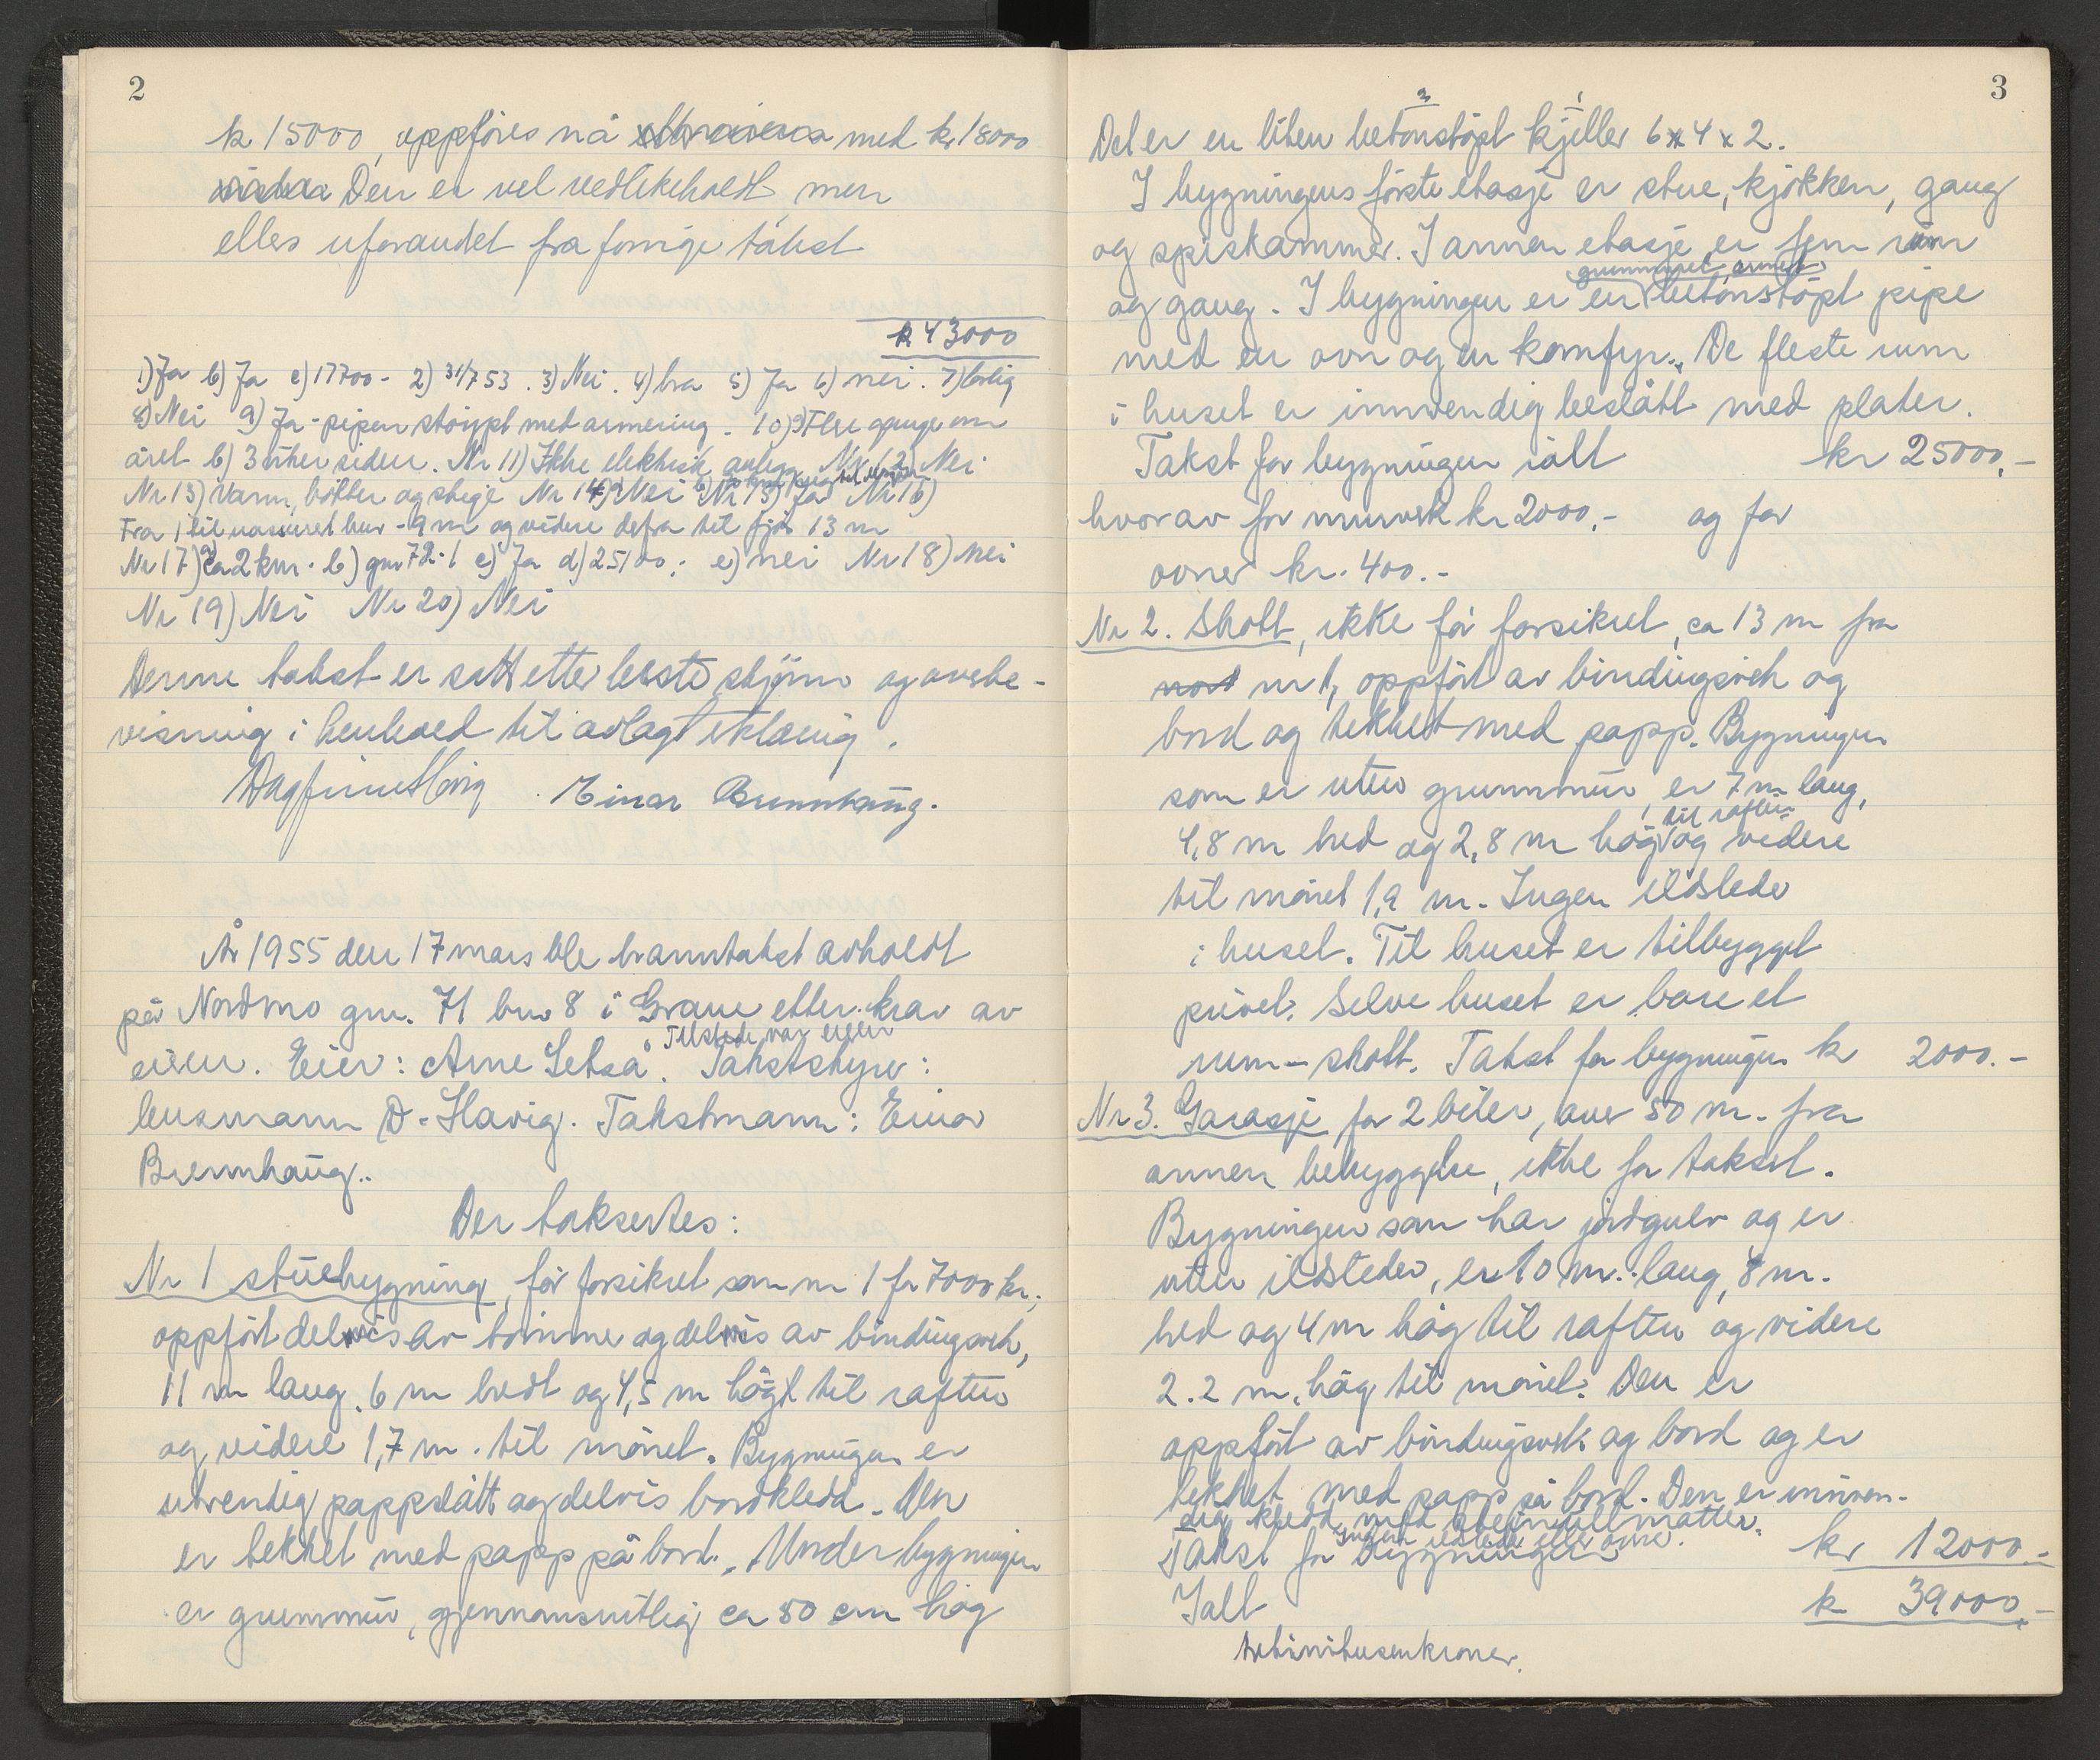 2
kr 15000, oppføres nå med kr 18000
Den er vel vedlikeholdt men
elles uforandet fra forrige takst
kr 43000
1) Ja b) Ja c) 17700- 2) 31/7 53. 3) Nei. 4) bra 5) Ja 6) nei. 7) årlig
8) Nei 9) Ja - pipen støypt med armering. 10) a) Flere gange om
året b) 3 uker siden. Nr 11) Ikke elektrisk anlegg Nr 12) Nei
Nr 13) Vann, bøtter og stige Nr 14) a) Nei Nr 15) Ja Nr 16)
Fra 1 til uassurert hus - 9 m og videre defra til fjøs 13 m
Nr 17) a) ca 2 km. b) gnr 72.1 c) Ja d) 25100; e) nei Nr 18) Nei
Nr 19) Nei Nr 20) Nei
Denne takst er satt etter beste skjønn og overbe-
visning i henhold til avlagt erklæring.
Dagfinn Havig Einar Bremnhaug.
År 1955 den 17 mars ble branntakst avholdt
på Nordmo gnr. 71 bnr 8 i Grane etter krav av
Tilstede var eieren
eieren. Eier: Arne Setså. Takststyrer:
lensmann D. Havig. Takstmann: Einar
Bremnhaug..
Der taksertes:
Nr 1 stuebygning, før forsikret som nr 1 for 7000 kr;
oppført delvis av tømmer og delvis av bindingsverk,
11 m lang, 6 m bredt og 4,5 m høgt til raften
og videre 1,7 m. til mønet. Bygningen er
utvendig pappslått og delvis bordkledd. Den
er tekket med papp på bord. Under bygningen
er grunnmur, gjennomsnitlig ca 80 cm høg
3
Det er en liten betonstøpt kjeller 6 x 4 x 2.
I bygningens første etasje er stue, kjøkken, gang
og spiskammer. I annen etasje er fem rum
grunnmuret, armert
og gang. I bygningen er en betonstøpt pipe
med en ovn og en komfyr. De fleste rum
i huset er innvendig beslått med plater.
Takst for bygningen ialt kr 25000,-
hvorav for murverk kr 2000,- og for
ovner kr. 400.-
Nr 2. Skott, ikke før forsikret, ca 13 m fra
nr 1, oppført av bindingsverk og
bord og tekket med papp. Bygningen
som er uten grunnmur, er 7 m lang,
til raften
4,8 m bred og 2,8 m høg og videre
til mønet 1,9 m. Ingen ildsteder
i huset. Til huset er tilbygget
privet. Selve huset er bare et
rum - skott. Takst for bygningen kr 2000.-
Nr 3. Garasje for 2 biler, over 50 m. fra
annen bebyggelse, ikke før taksert.
Bygningen som har jordgulv og er
uten ildsteder, er 10 m. lang, 8 m.
bred og 4 m høg til raften og videre
2.2 m. høg til mønet. Den er
oppført av bindingsverk og bord og er
tekket med papp på bord. Den er innven-
dig kledd med steinullmatter.
Ingen ildsted eller ovne.
Takst for bygningen kr 12000.-
Ialt kr 39000,-
trettinitusenkroner.